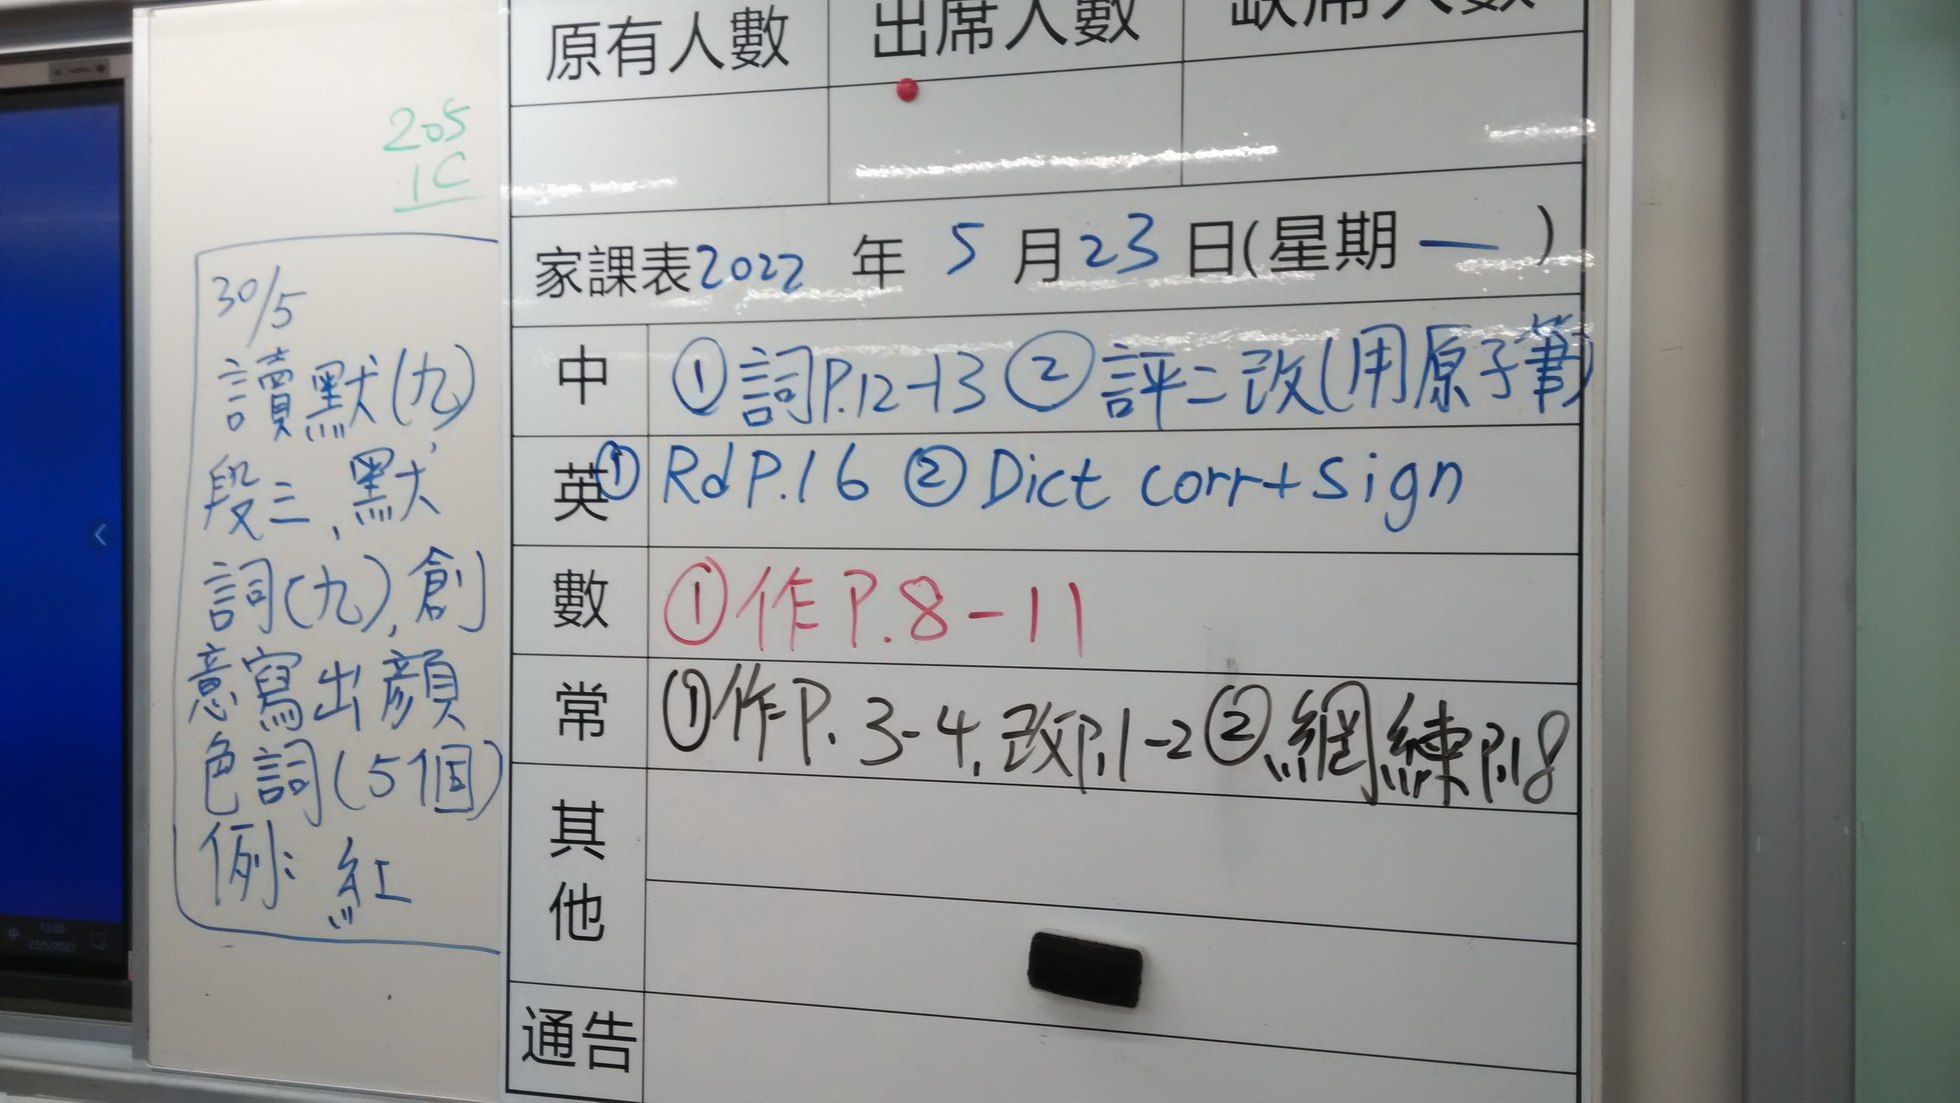 205
1C
30/5
讀默(九)
段三,默
詞(九),創
意寫出顏
色詞(5個)
例:紅
原有人數 出席人數 缺席人數
家課表2022 年 5 月 23 日(星期 一 )
中 ①詞P.12-13 ②評二改(用原子筆)
英 ① Rd P.16 ② Dict corr+sign
數 ①作P.8-11
常 ①作P.3-4,改P.1-2 ②網練P.18
其他
通告
中 13:00
23/5/2022